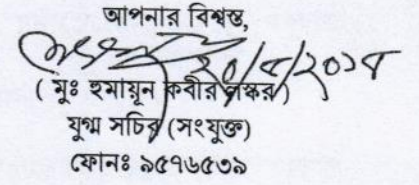 আপনার বিশ্বস্ত,
২০/৫/২০১৪
( মুঃ হুমায়ূন কবীর লস্কর)
যুগ্ম সচিব (সংযুক্ত)
ফোনঃ ৯৫৭৬৫৩৯